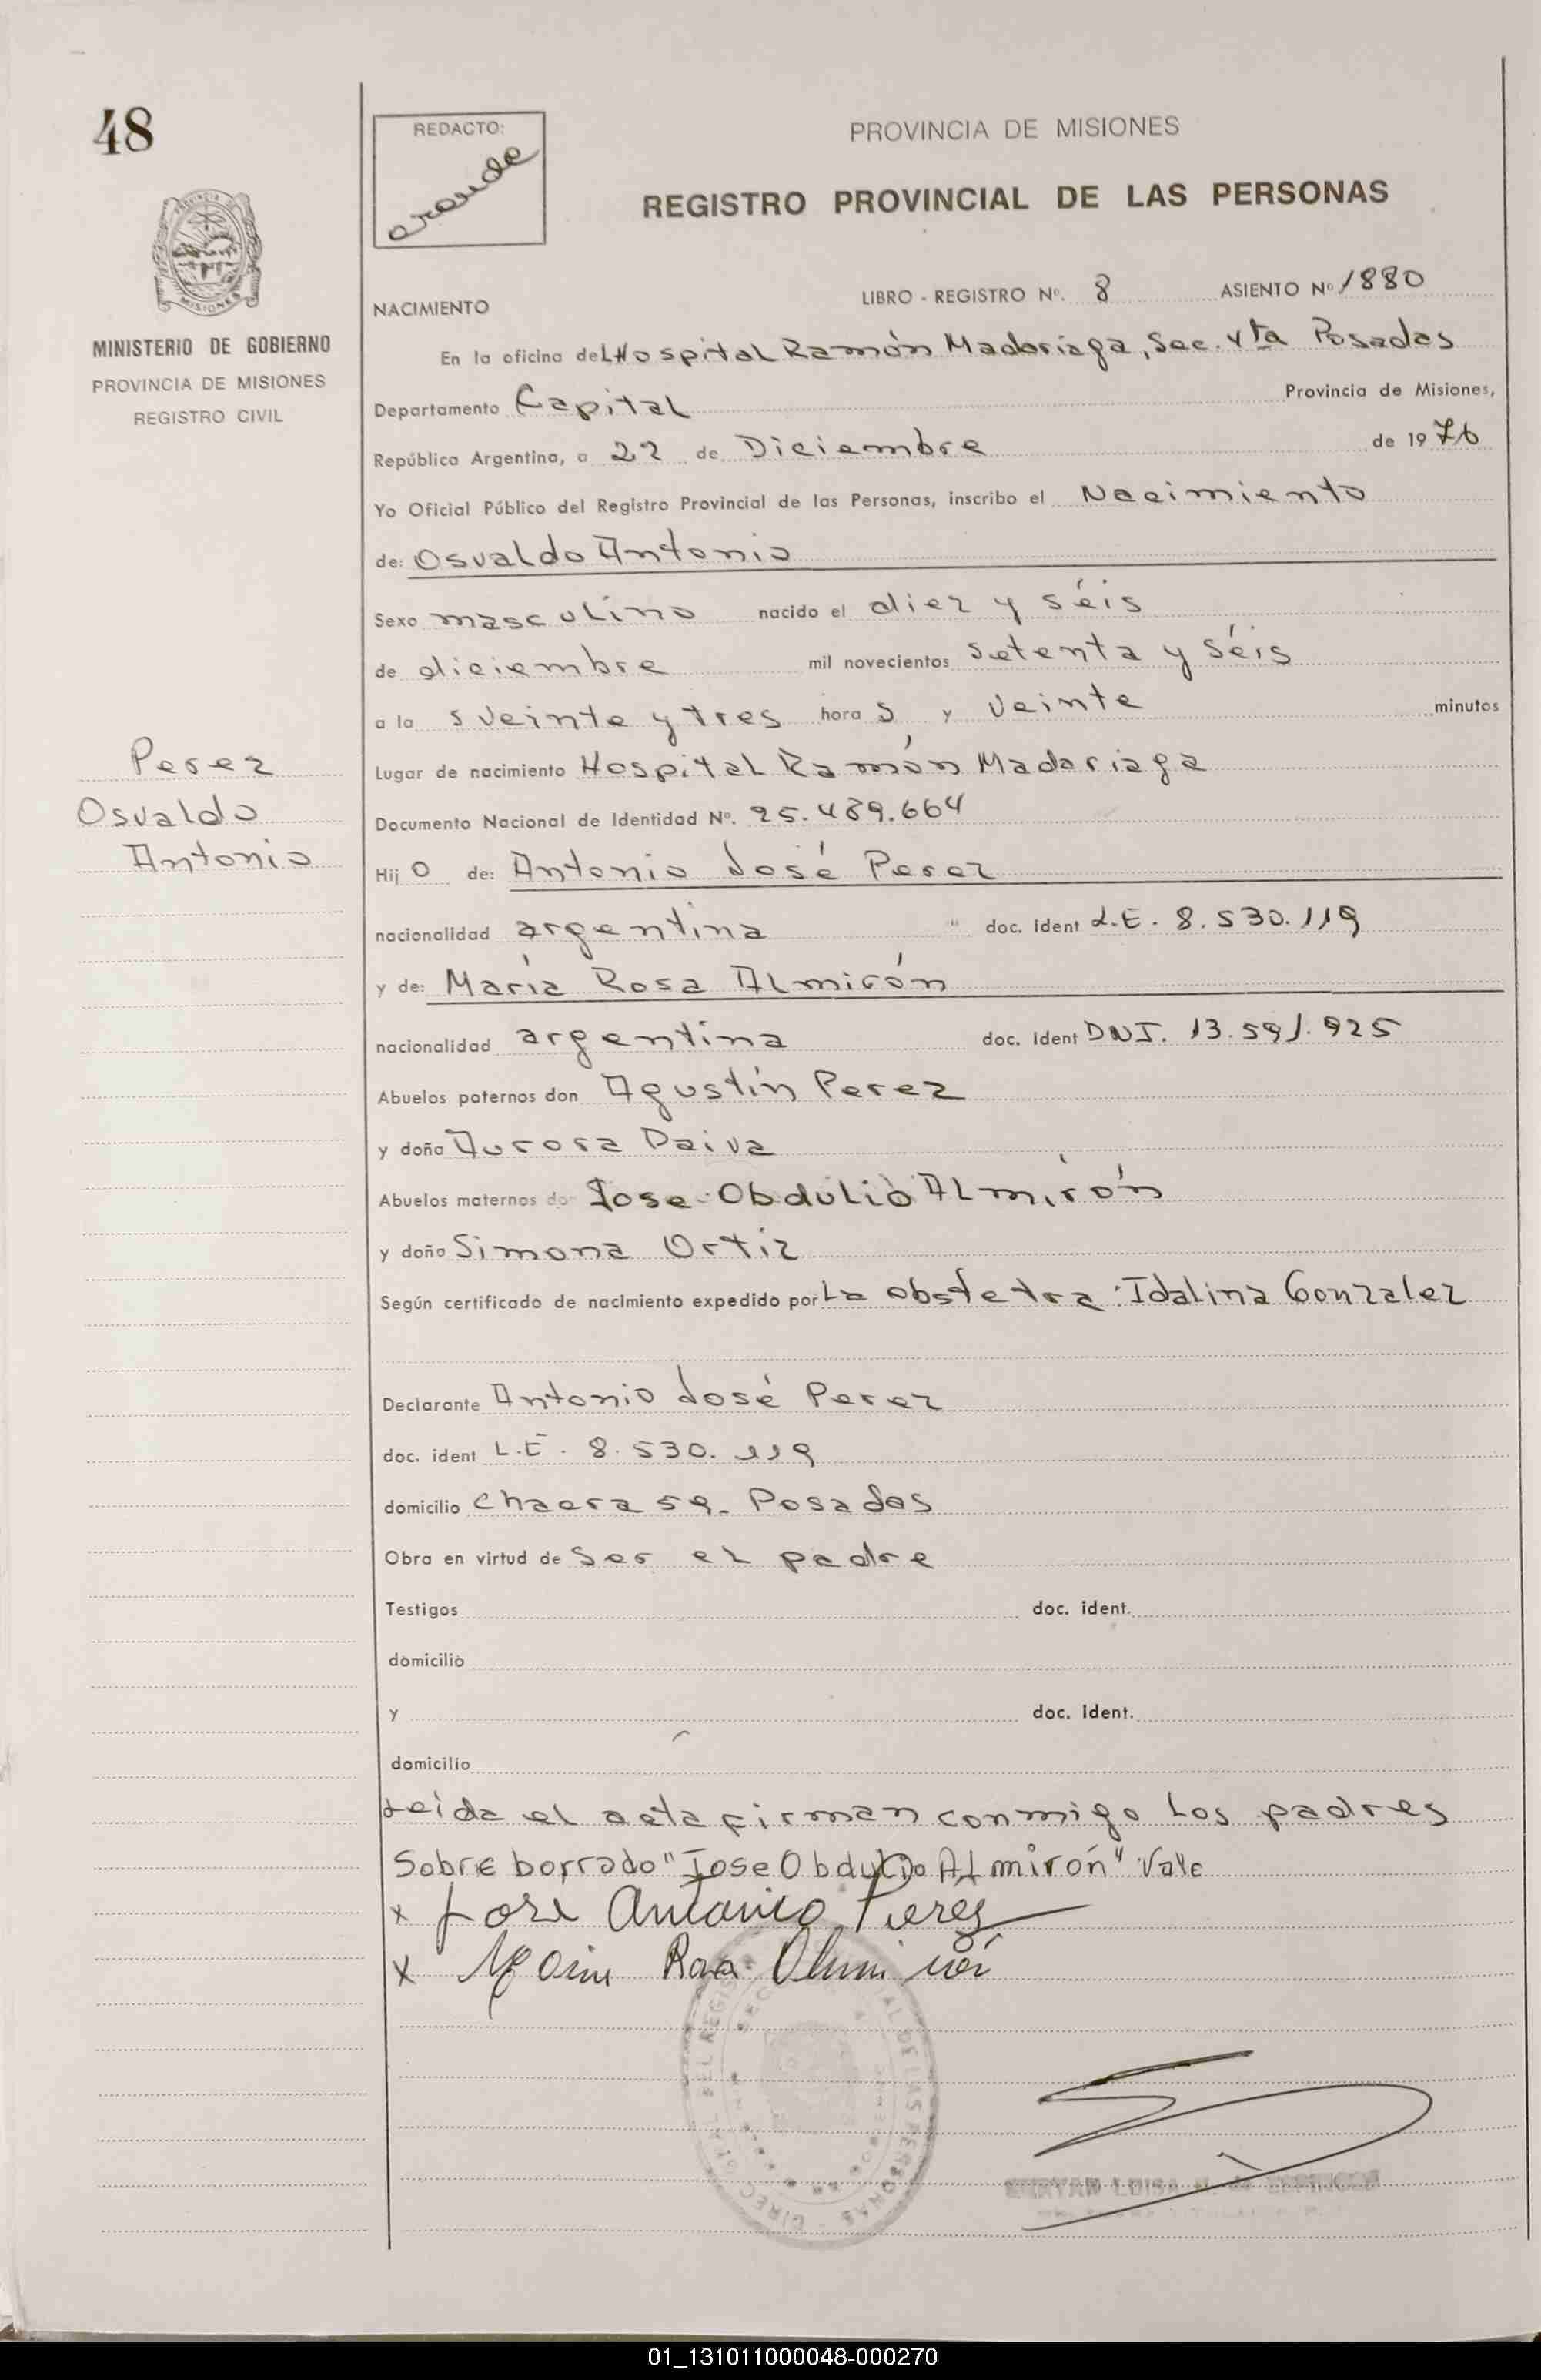 48
REDACTO:
PROVINCIA DE MISIONES
REGISTRO PROVINCIAL DE LAS PERSONAS
MISIONES
MINISTERIO DE GOBIERNO
PROVINCIA DE MISIONES
REGISTRO CIVIL
NACIMIENTO
LIBRO - REGISTRO Nº. 8 ASIENTO Nº 1880
En la oficina del Hospital Ramón Madariaga, Sec. 4ta Posadas
Departamento Capital Provincia de Misiones,
República Argentina, a 22 de Diciembre de 1976
Yo Oficial Público del Registro Provincial de las Personas, inscribo el Nacimiento
de: Osvaldo Antonio
Sexo masculino nacido el diez y séis
de diciembre mil novecientos setenta y séis
a la s veinte y tres hora s y veinte minutos
Perez
Osvaldo
Antonio
Lugar de nacimiento Hospital Ramón Madariaga
Documento Nacional de Identidad Nº. 25.489.664
Hij o de: Antonio José Perez
nacionalidad argentina doc. ident L.E. 8.530.119
y de: María Rosa Almirón
nacionalidad argentina doc. ident DNI. 13.591.925
Abuelos paternos don Agustín Perez
y doña Aurora Paiva
Abuelos maternos don Jose Obdulio Almirón
y doña Simona Ortiz
Según certificado de nacimiento expedido por La obstetra: Idalina Gonzalez
Declarante Antonio José Perez
doc. ident L.E. 8.530.119
domicilio Chacra 59. Posadas
Obra en virtud de Ser el padre
Testigos doc. ident.
domicilio
y doc. ident.
domicilio
Leida el acta firman conmigo los padres
Sobre borrado "Jose Obdulio Almirón" Vale
x Jose Antonio Perez
x Maria Rosa Almiron
01_131011000048-000270